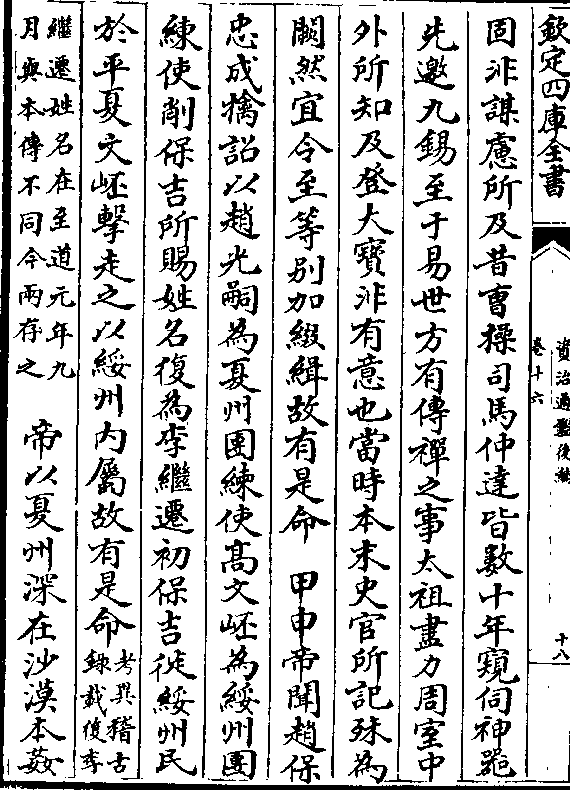 欽定四庫全書
資治通鑑後編
卷十六
十八
固非謀慮所及昔曹操司馬仲達皆數十年窺伺神器
先邀九錫至于易世方有傳禪之事太祖盡力周室中
外所知及登大寶非有意也當時本末史官所記殊為
闕然宜令至等別加綴緝故有是命 甲申帝聞趙保
忠成擒詔以趙光嗣為夏州團練使高文岯為綏州團
練使削保吉所賜姓名復為李繼遷初保吉徙綏州民
於平夏文岯擊走之以綏州內屬故有是命
考異稽古
錄載復李
繼遷姓名在至道元年九
月與本傳不同今兩存之
帝以夏州深在沙漠本姦